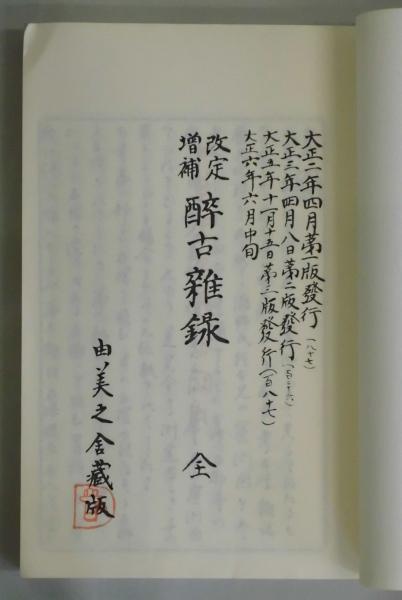 大正二年四月第一版發行(八十七)
大正三年四月八日第二版發行(百二十六)
大正五年十一月十五日第三版發行(百八十七)
大正六年六月中旬
改定
增補
醉古雜錄 全
由美之舍藏版